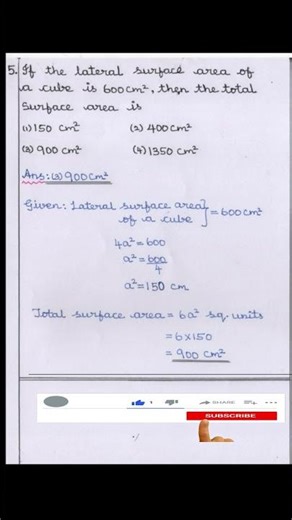 5. If the lateral surface area of
a cube is 600cm², then the total
Surface area is
(1) 150 cm² (2) 400 cm²
(3) 900 cm² (4) 1350 cm²
Ans: (3) 900 cm²
Given: Lateral surface area
of a cube } = 600 cm²
4a² = 600
a² = 600/4
a² = 150 cm
Total surface area = 6a² sq. units
= 6×150
= 900 cm²
1 SHARE
SUBSCRIBE